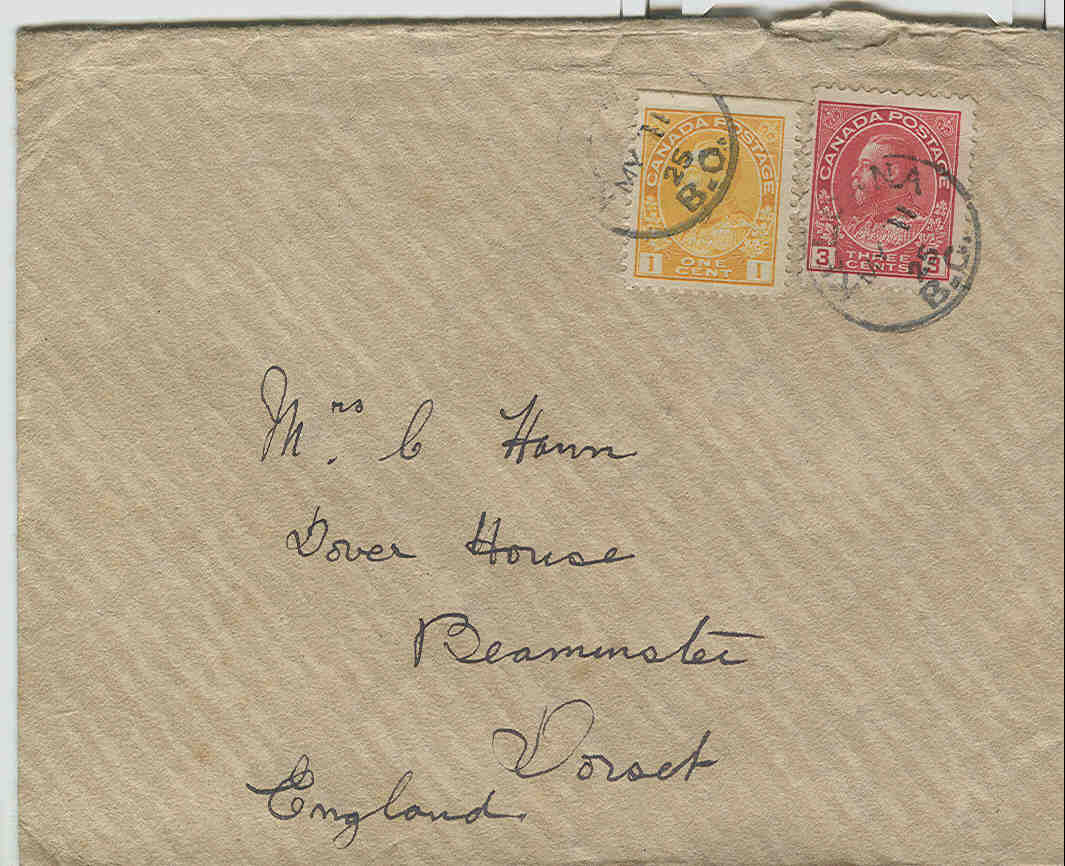 CANADA POSTAGE
1 ONE CENT 1
MY 11
25
B.C.
CANADA POSTAGE
3 THREE CENTS 3
NA
11
25
B.C.
Mrs. C Hann
Dover House
Beaminster
Dorset
England.